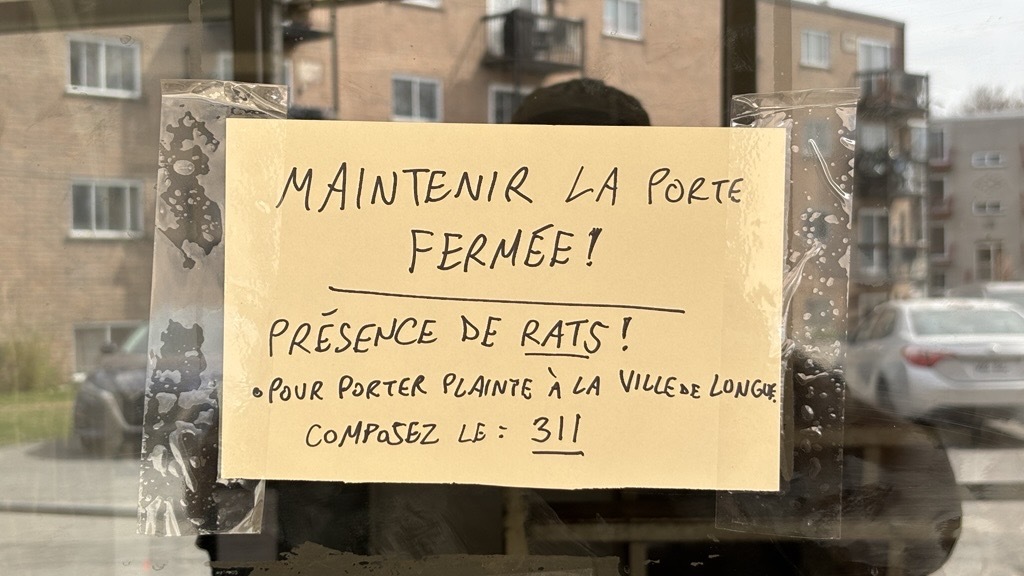 MAINTENIR LA PORTE
FERMÉE!
PRÉSENCE DE RATS!
• POUR PORTER PLAINTE À LA VILLE DE LONGUE
COMPOSEZ LE : 311